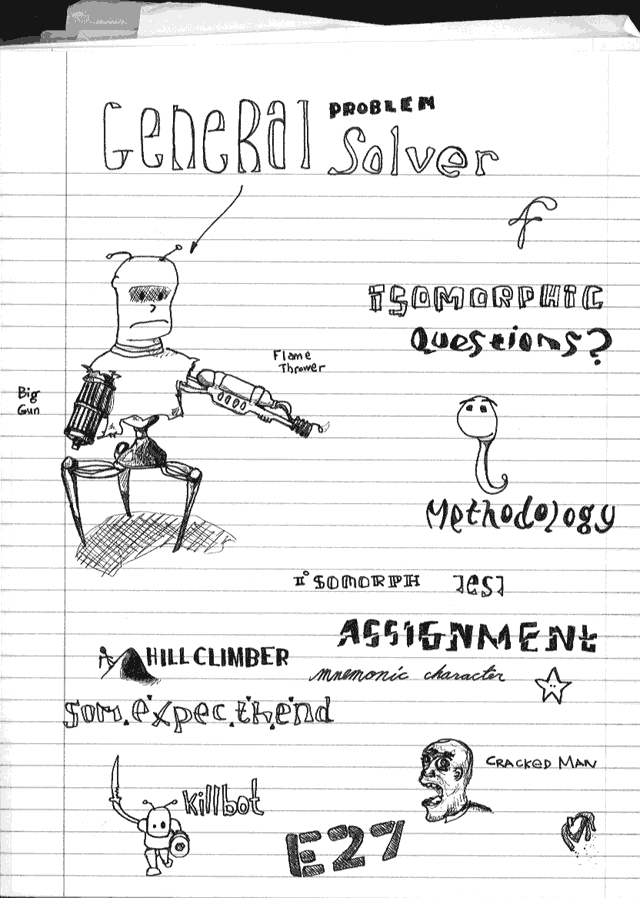 GeneRal PROBLEM Solver
f
ISOMORPHIC
Questions?
Flame
Thrower
Big
Gun
Methodology
ISOMORPH TEST
ASSIGNMENt
HILL CLIMBER
mnemonic character
som.expec.th.end
CRACKED MAN
killbot
E27